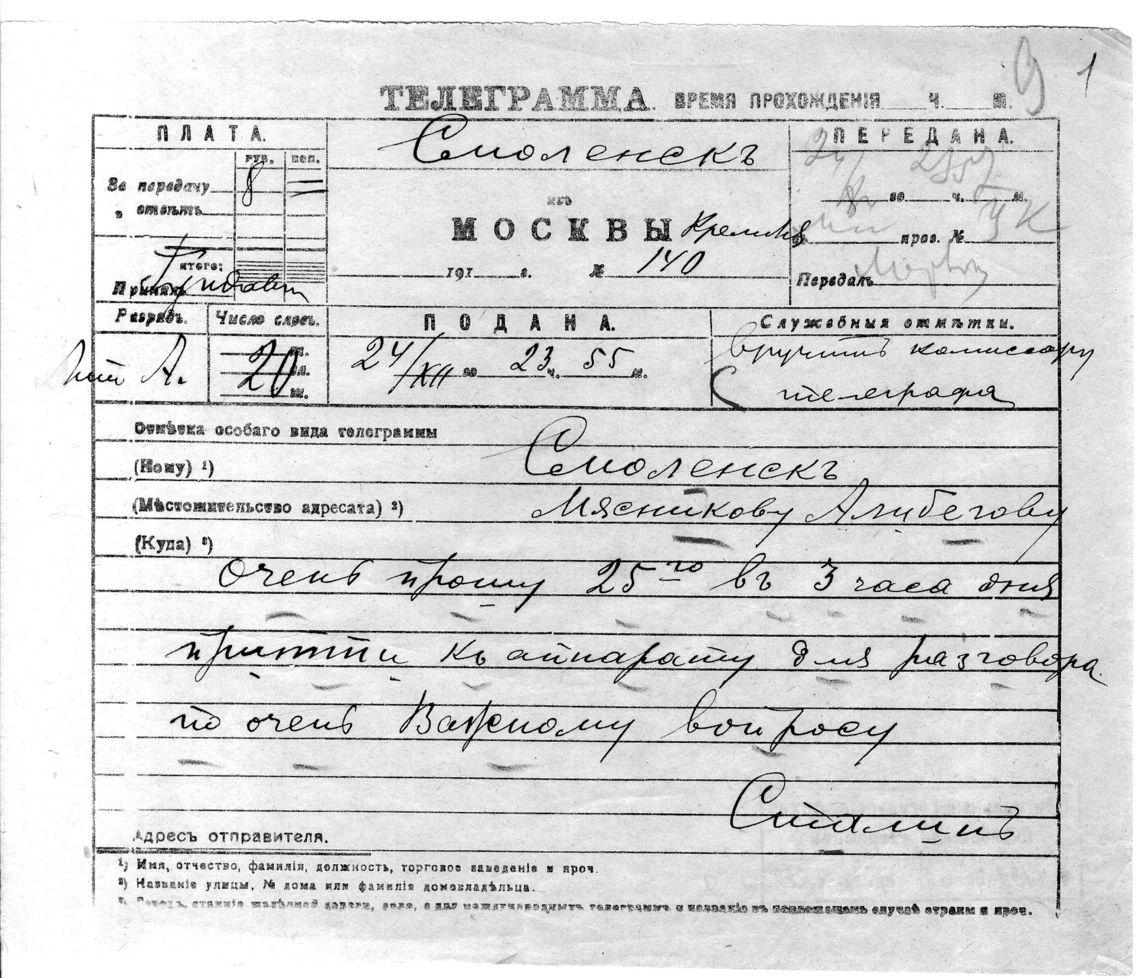 9 1
ТЕЛЕГРАММА. ВРЕМЯ ПРОХОЖДЕНІЯ ч. м.
ПЛАТА.
РУБ. КОП.
За передачу 8 =
„ отвѣтъ
ИТОГО:
Принялъ
Смоленскъ
изъ
МОСКВЫ Кремля
191 г. № 140
ПЕРЕДАНА.
24/ 2357
го ч. м.
пров. № ЧК
Передалъ
Разрядъ. Число словъ. ПОДАНА. Служебныя отмѣтки.
Лит А. 20 24/XII го 23 ч. 55 м. Вручить комиссару
телеграфа
Отмѣтка особаго вида телеграммы
(Кому) ¹) Смоленскъ
(Мѣстожительство адресата) ²) Мясникову Алибегову
(Куда) ³)
Очень прошу 25го въ 3 часа дня
притти къ аппарату для разговора
по очень Важному вопросу
Сталинъ
Адресъ отправителя.
¹) Имя, отчество, фамилія, должность, торговое заведеніе и проч.
²) Названіе улицы, № дома или фамилія домовладѣльца.
станція желѣзной дороги, села, а для международныхъ телеграммъ и названіе въ случаѣ страны и проч.